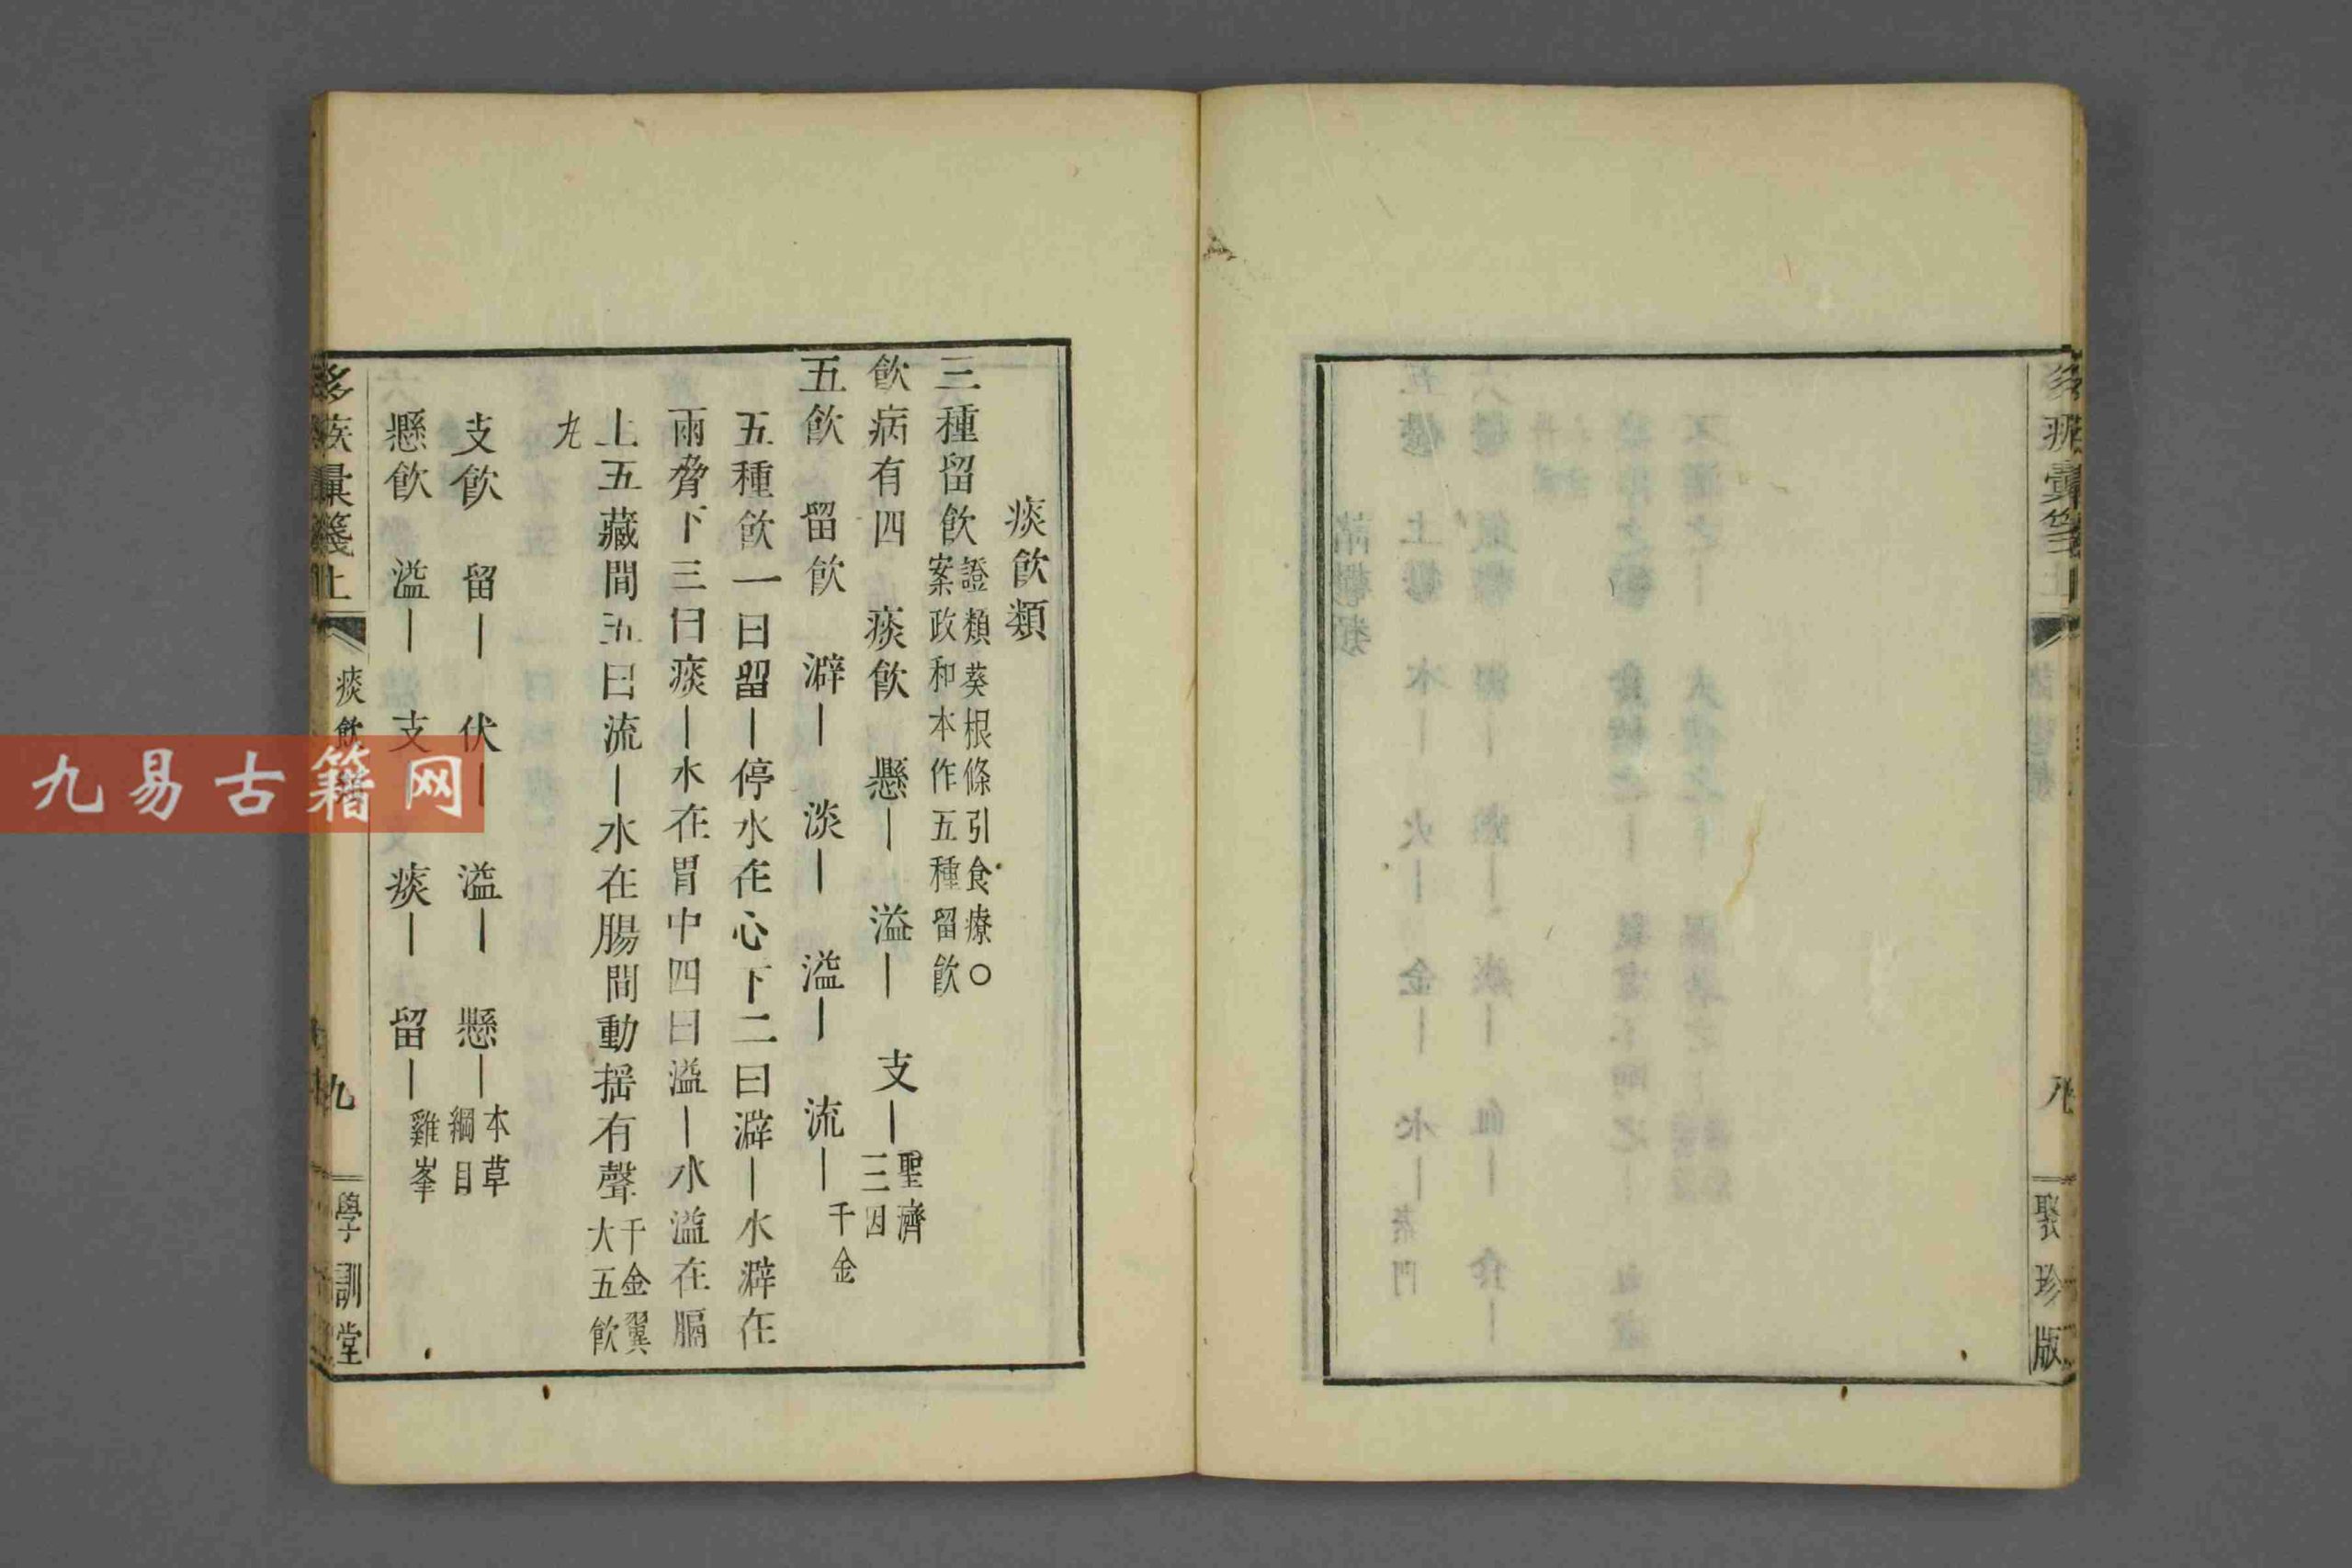 痰飲類
三種留飲證類葵根條引食療○案政和本作五種留飲
飲病有四　痰飲　懸｜　溢｜　支｜聖濟三因
五飲　留飲　澼｜　淡｜　溢｜　流｜千金
五種飲一曰留｜停水在心下二曰澼｜水澼在
兩脅下三曰痰｜水在胃中四曰溢｜水溢在膈
上五藏間五曰流｜水在腸間動搖有聲千金翼大五飲
九
支飲　留｜　伏｜　溢｜　懸｜本草綱目
懸飲　溢｜　支｜　痰｜　留｜雞峯
彙箋上
痰飲類
九
學訓堂
聚珍版
九易古籍网